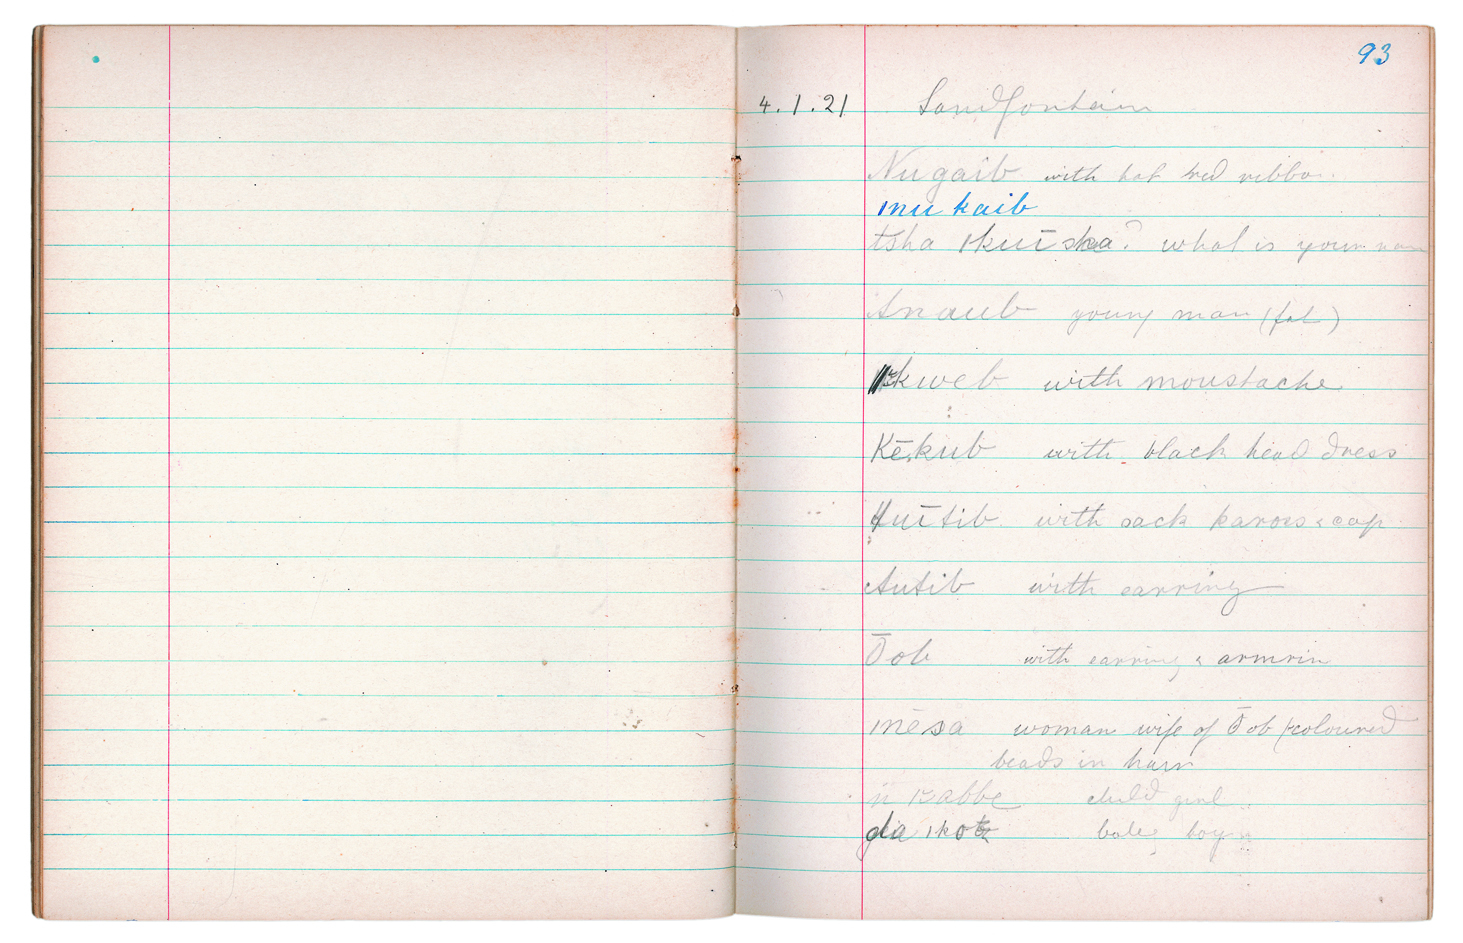 93
4.1.21 Sandfontein
Nugaib with hat red ribbon
ınu kaib
tsha ıkuī ska? what is your nam
Anaub young man (fat)
kweb with moustache
Kēkub with black head dress
uītib with sack kaross & cap
Autib with earring
Ōob with earring & armrin
mēsa woman wife of Ōob (coloured
beads in hair
child girl
baby boy